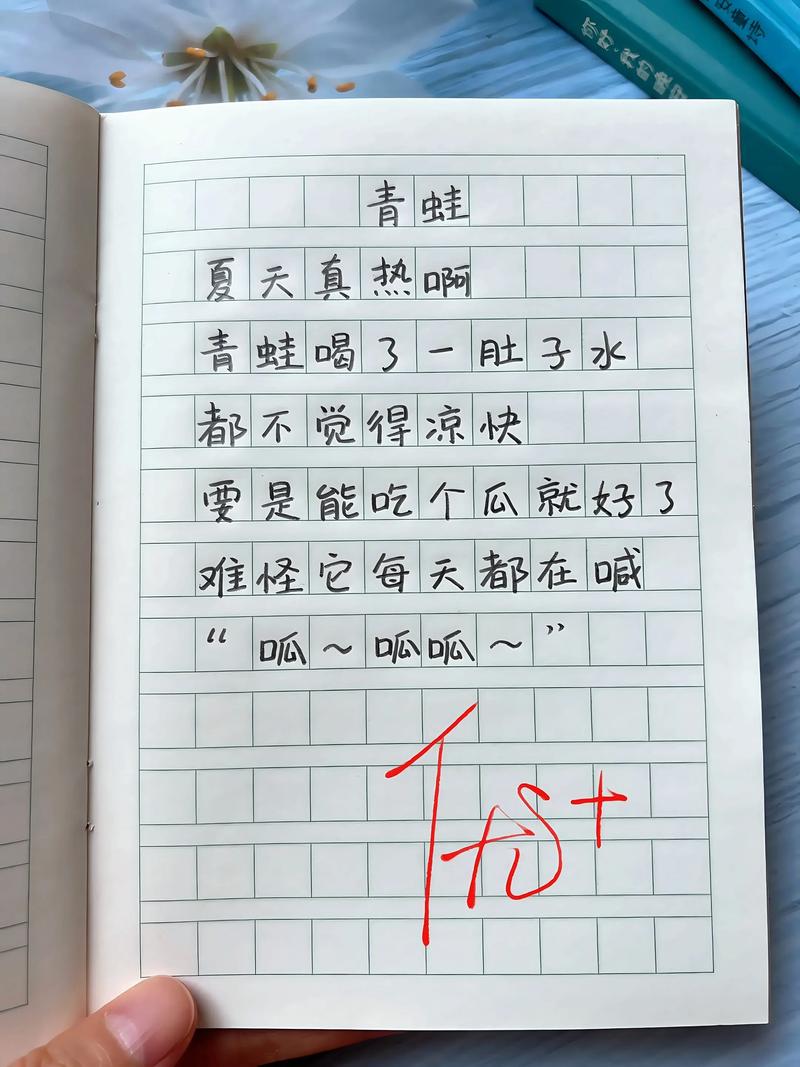 青蛙
夏天真热啊
青蛙喝了一肚子水
都不觉得凉快
要是能吃个瓜就好了
难怪它每天都在喊
“呱～呱呱～”
优+